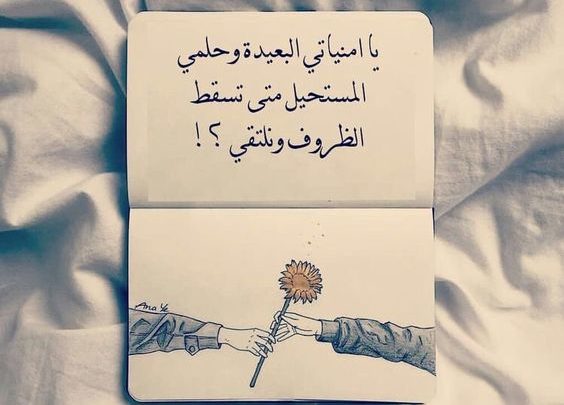 يا امنياتي البعيدة وحلمي
المستحيل متى تسقط
الظروف ونلتقي ؟ !
Ana Ye